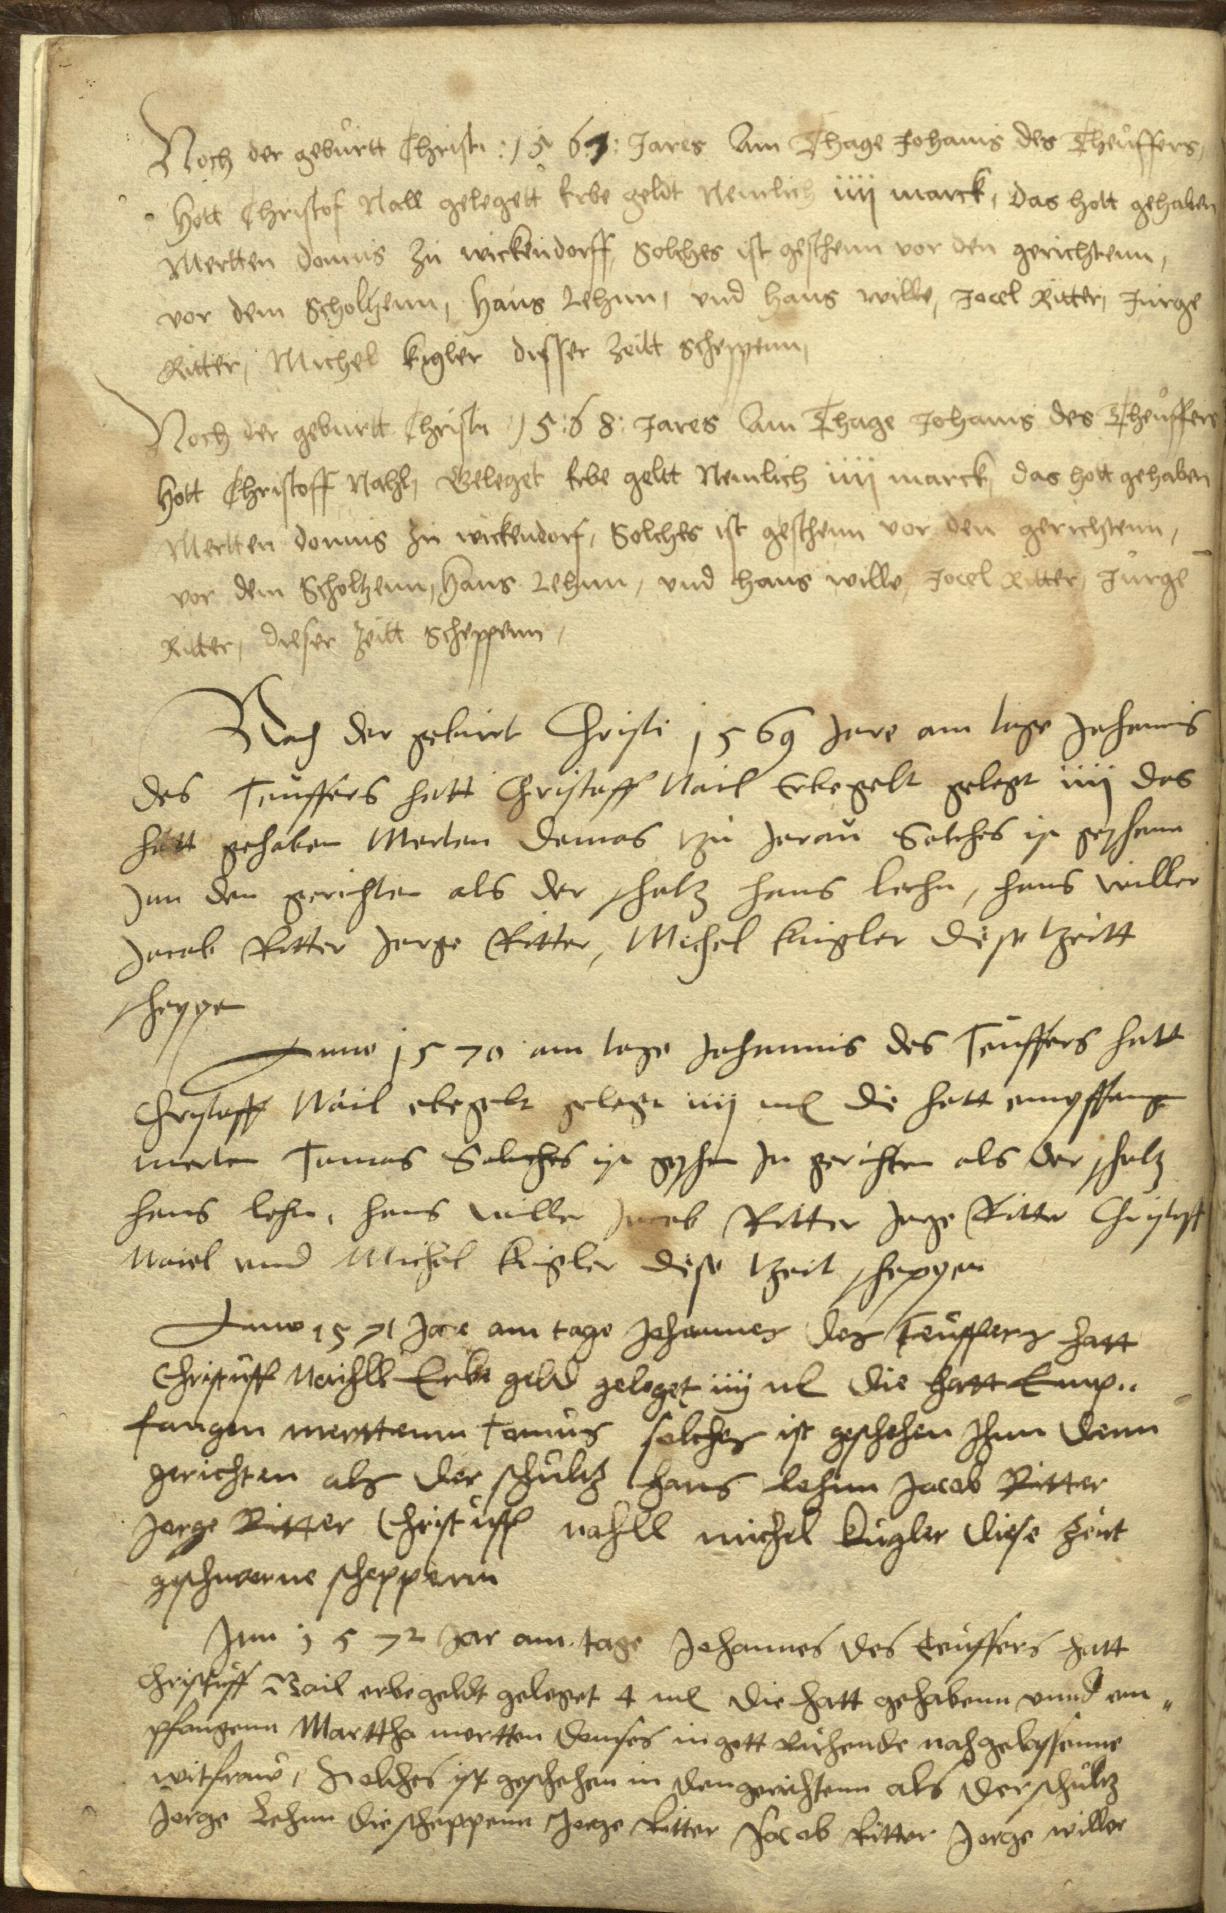 Noch der gebůrtt Christi : 1567 : Jares Am Thage Johanis des Theůffers,
Hott Christof Nall gelegett Erbe geldt Nemlich iiij marck, das hott gehaben
Mertten domis zu wickendorff, Solches ist geschenn vor den gerichtenn,
vor dem Scholtzenn, Hans Lehnn, vnd hans wille, Jocel Ritter, Jurge
Ritter, Michel kigler disser Zeitt scheppenn,
Noch der geburtt Christi 1568 : Jares Am Thage Johanis des Theůffers
Hott Christoff Nahl, Geleget Erbe geltt Nemlich iiij marck, das hott gehaben
Mertten domis zu wickendorf, Solches ist geschenn vor den gerichtenn,
vor dem Scholtzenn, Hans Lehnn, vnd hans wille, Jocel Ritter, Jůrge
Ritter, dieser Zeitt Scheppenn,
Nach der geburt Christi 1569 Jare am tage Johannis
des Teuffers hatt Christoff Nail Erbegelt gelegt iiij das
hatt gehaben Merten Domas tzu Jerau Solches ist geschenn
Jnn den gerichten als der scholz hans lechn, hans willer
Jacob Ritter Jorge Ritter, Michel kugler diese tzeitt
scheppe
Anno 1570 am tage Johannis des Teuffers hatt
Christoff Nail erbegelt gelegt iiij ml die hatt empffang
merten Tomas Solches ist geschen in gerichten als der scholz
hans lehn, hans willer Jacob Ritter Jorge Ritter Christoff
Naiel vnd Michel kugler diese tzeit scheppen
Anno 1571 Jare am tage Johannes des Teufferz hatt
Christuff Naihll Erbe geld geleget iiij ml die hatt Emp..
fangen merttenn Tomus solches ist geschehen Jhnn denn
gerichten als der schultz hans lehnn Jacob Ritter
Jorge Ritter Christuff nahll michel kugler diese Zeit
geschworne schepponn
Jnn 1572 Jar am tage Johannes des Teuffers hatt
Christuff Nail erbegeldt geleget 4 ml die hatt gehabenn vnnd em„
pfangenn Marttha mertten domses in gott Ruhende nachgelassenne
witfraw, Solches ist geschehen in den gerichtenn als der schultz
Jorge Lehnn die scheppenn Jorge Ritter Jacob Ritter Jorge willer